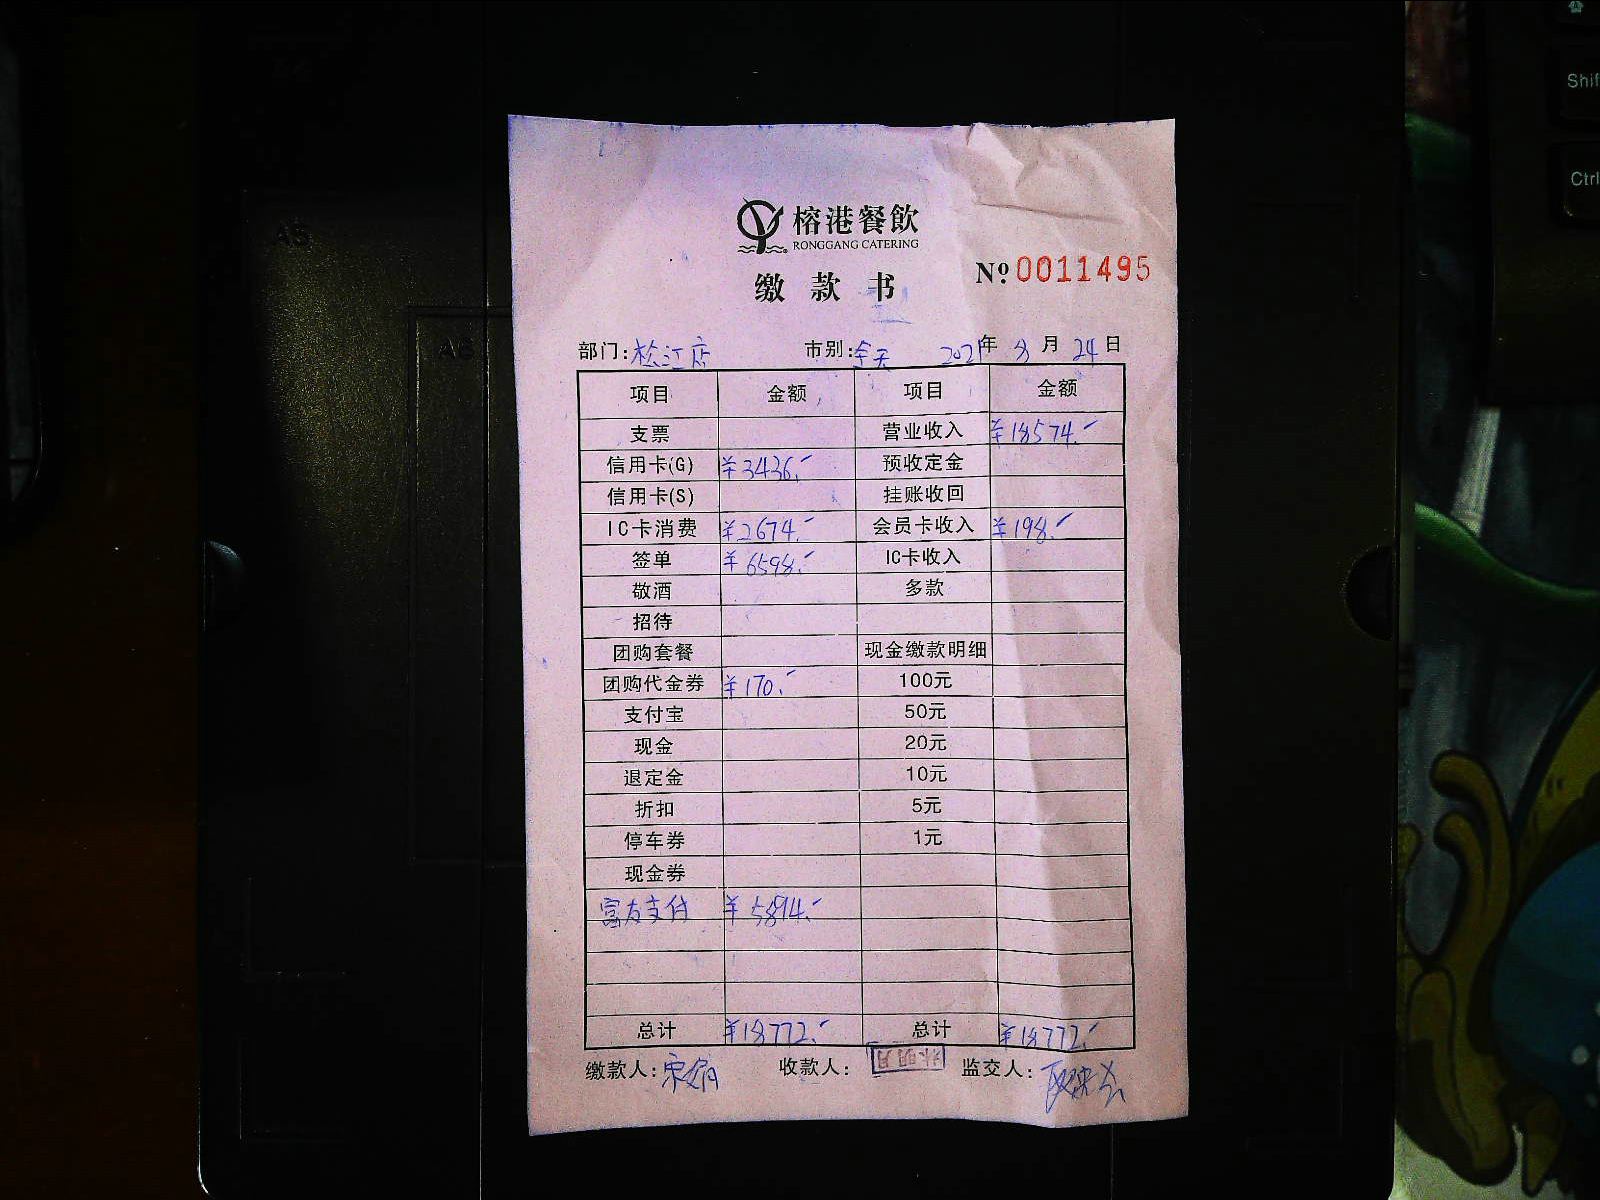 榕港餐飲
RONGGANG CATERING
缴款书
№ 0011495
部门: 松江店 市别: 全天 2021年 8月 24日
项目 金额 项目 金额
支票 营业收入 ¥18574.-
信用卡(G) ¥3436.- 预收定金
信用卡(S) 挂账收回
IC卡消费 ¥2674.- 会员卡收入 ¥198.-
签单 ¥6598.- IC卡收入
敬酒 多款
招待
团购套餐 现金缴款明细
团购代金券 ¥170.- 100元
支付宝 50元
现金 20元
退定金 10元
折扣 5元
停车券 1元
现金券
富友支付 ¥5894.-
总计 ¥18772.- 总计 ¥18772.-
缴款人: 收款人: 监交人:
Shift
Ctrl
A5
A6